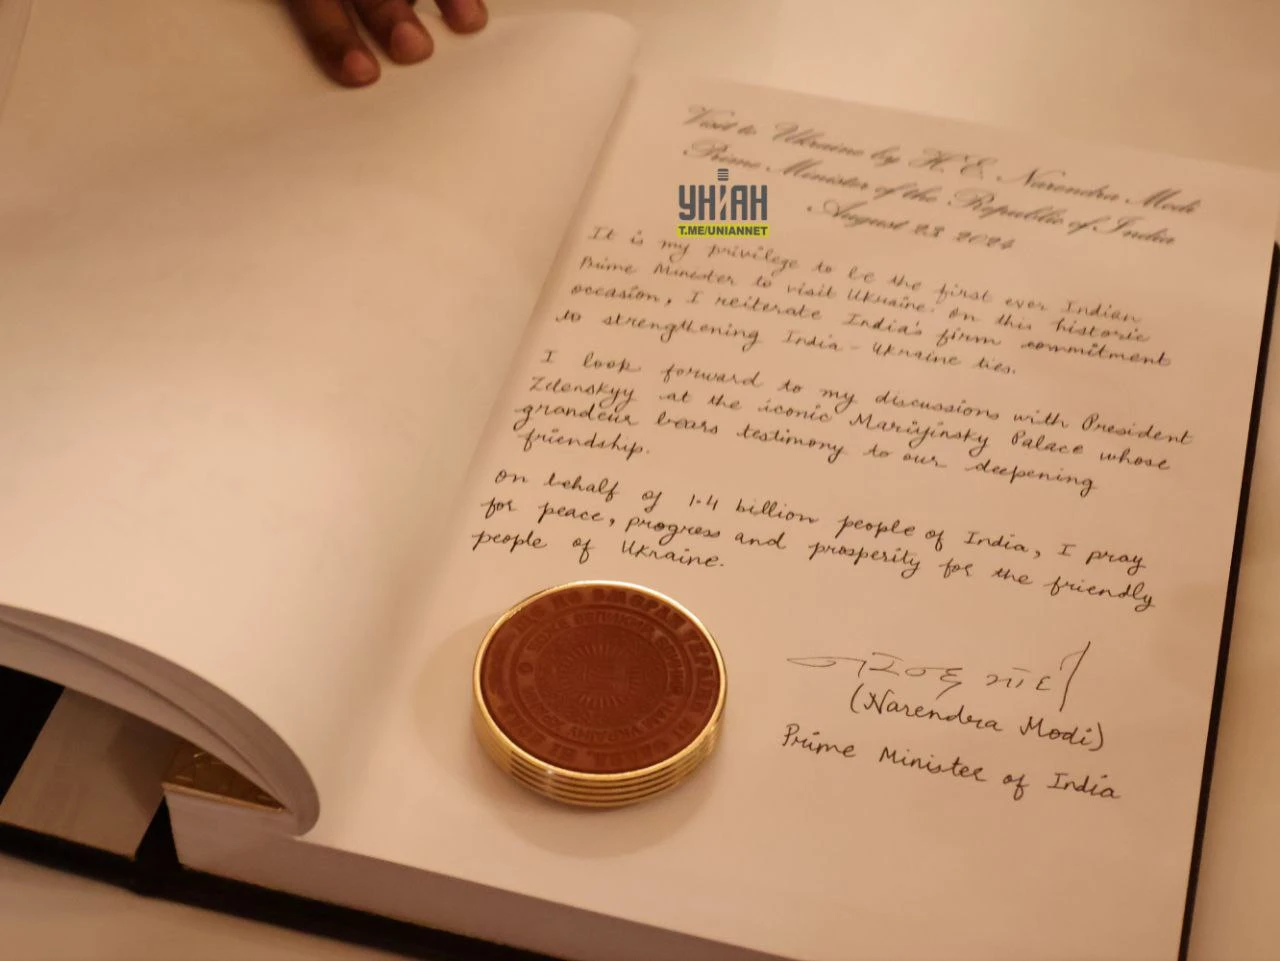 Visit to Ukraine by H. E. Narendra Modi
Prime Minister of the Republic of India
August 23 2024
УНІАН
T.ME/UNIANNET
It is my privilege to be the first ever Indian
Prime Minister to visit Ukraine. On this historic
occasion, I reiterate India's firm commitment
to strengthening India-Ukraine ties.
I look forward to my discussions with President
Zelenskyy at the iconic Mariyinsky Palace whose
grandeur bears testimony to our deepening
friendship.
On behalf of 1.4 billion people of India, I pray
for peace, progress and prosperity for the friendly
people of Ukraine.
नरेन्द्र मोदी
(Narendra Modi)
Prime Minister of India
ЩЕ НЕ ВМЕРЛА УКРАЇНИ
БОЖЕ ВЕЛИКИЙ ЄДИНИЙ НАМ УКРАЇНУ